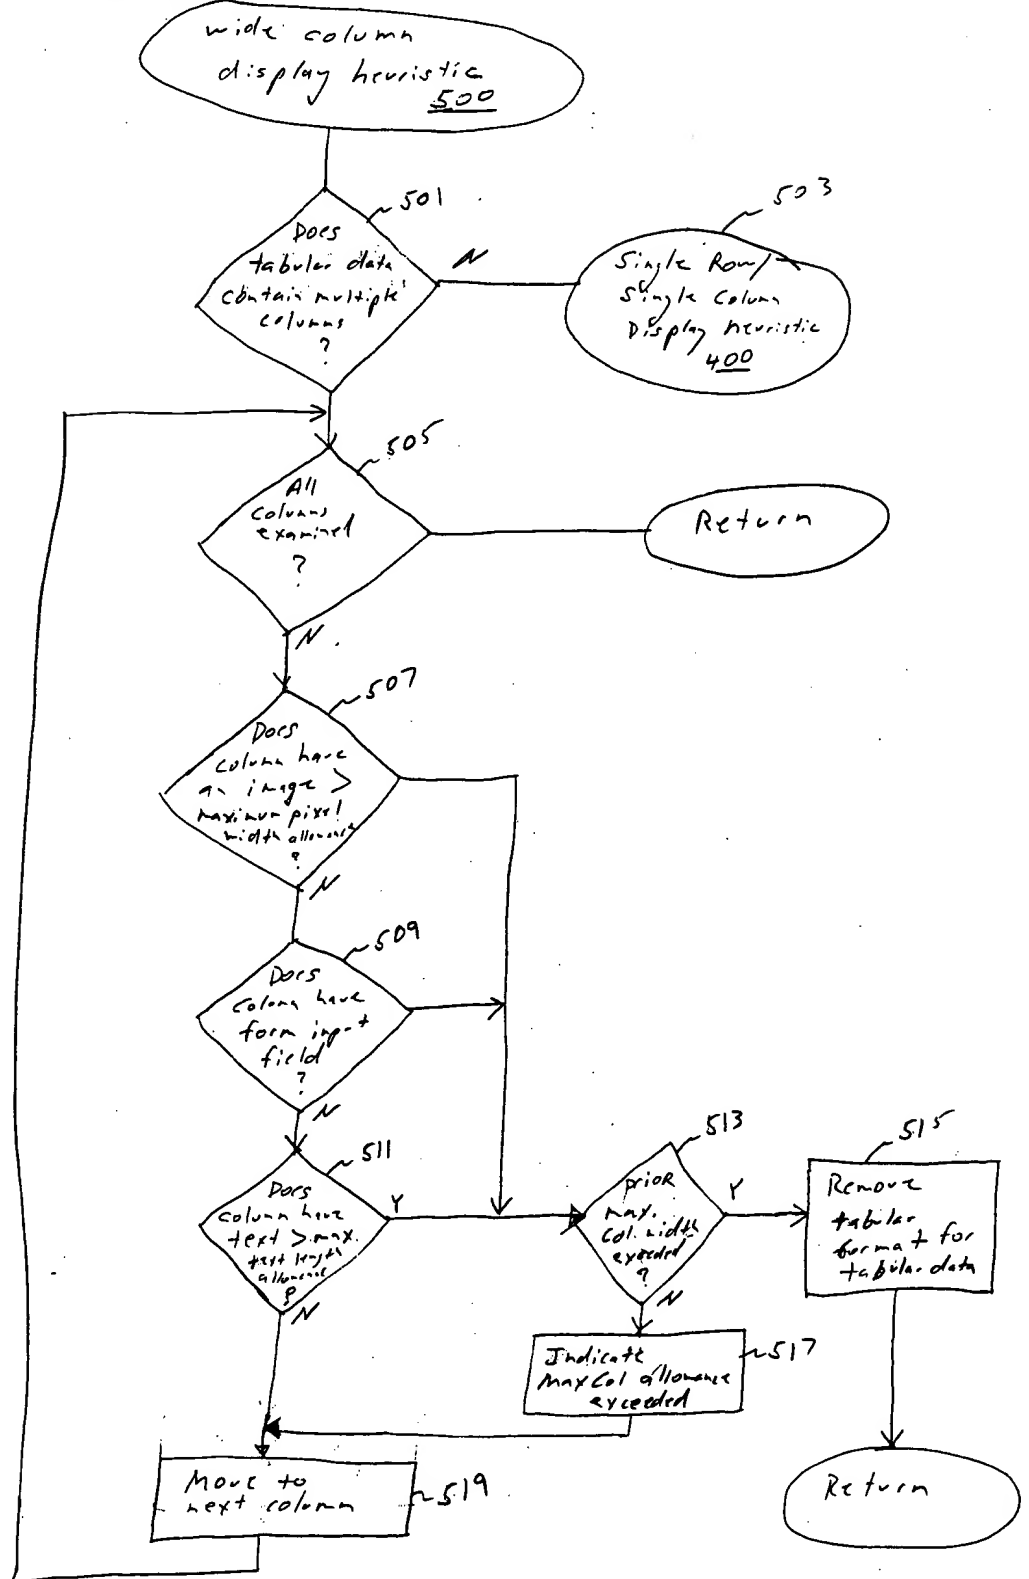 wide column
display heuristic
500
501
Does
tabular data
contain multiple
columns
?
N
503
Single Row/
Single Column
Display heuristic
400
505
All
columns
examined
?
Return
N
507
Does
column have
an image >
maximum pixel
width allowance
?
N
509
Does
column have
form input
field
?
N
511
Does
column have
text > max.
text length
allowance
?
Y
N
513
prior
max.
col. width
exceeded
?
Y
N
515
Remove
tabular
format for
tabular data
517
Indicate
Max Col allowance
exceeded
519
Move to
next column
Return